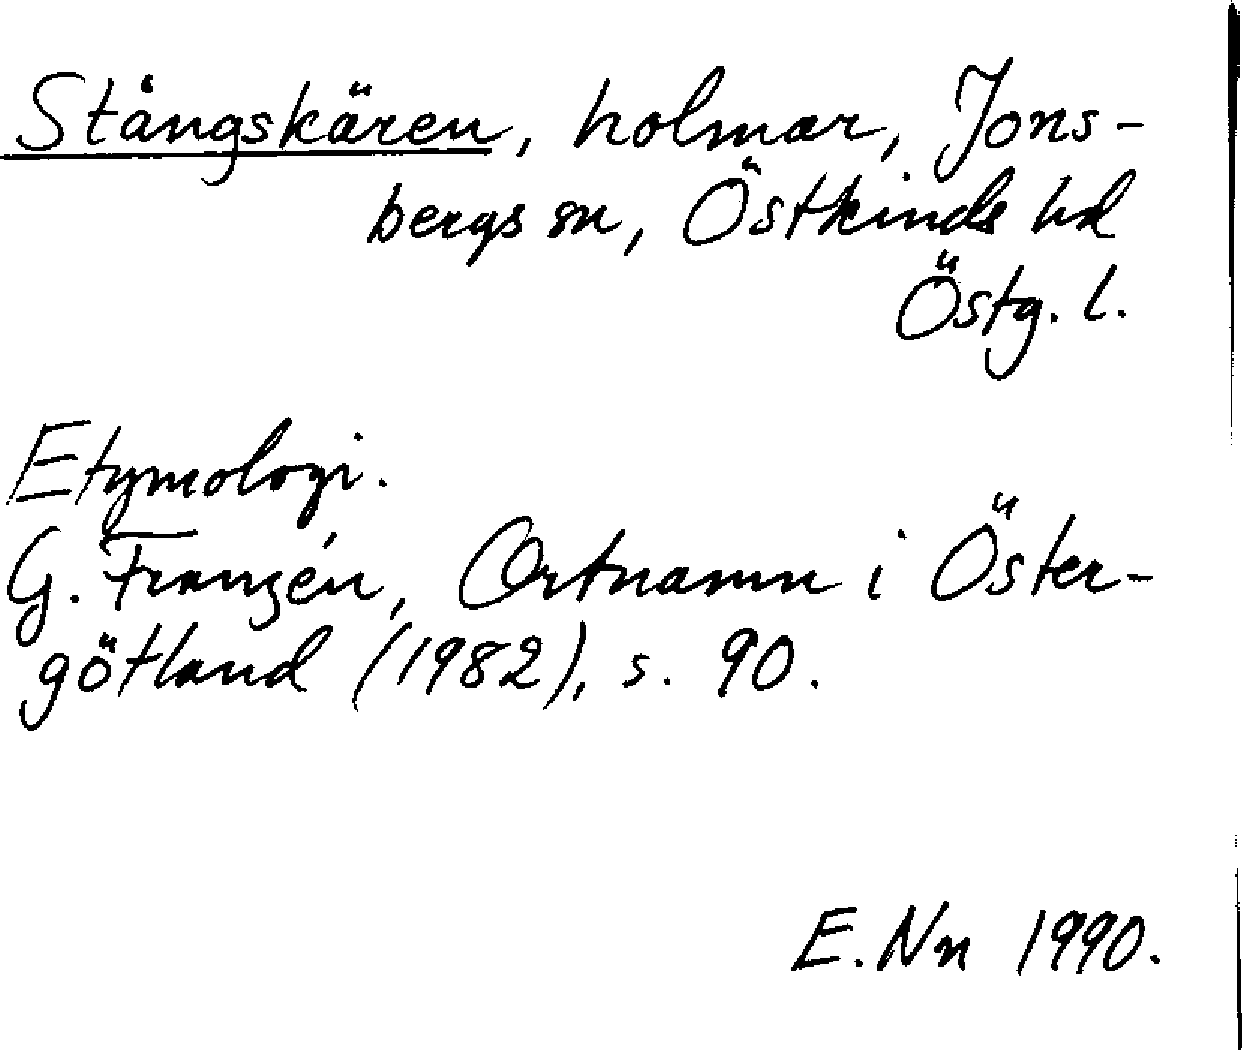 Stångskären, holmar, Jons-
bergs sn, Östkinds hd
Östg. l.
Etymologi.
G. Franzén, Ortnamn i Öster-
götland (1982), s. 90.
E. Nn 1990.